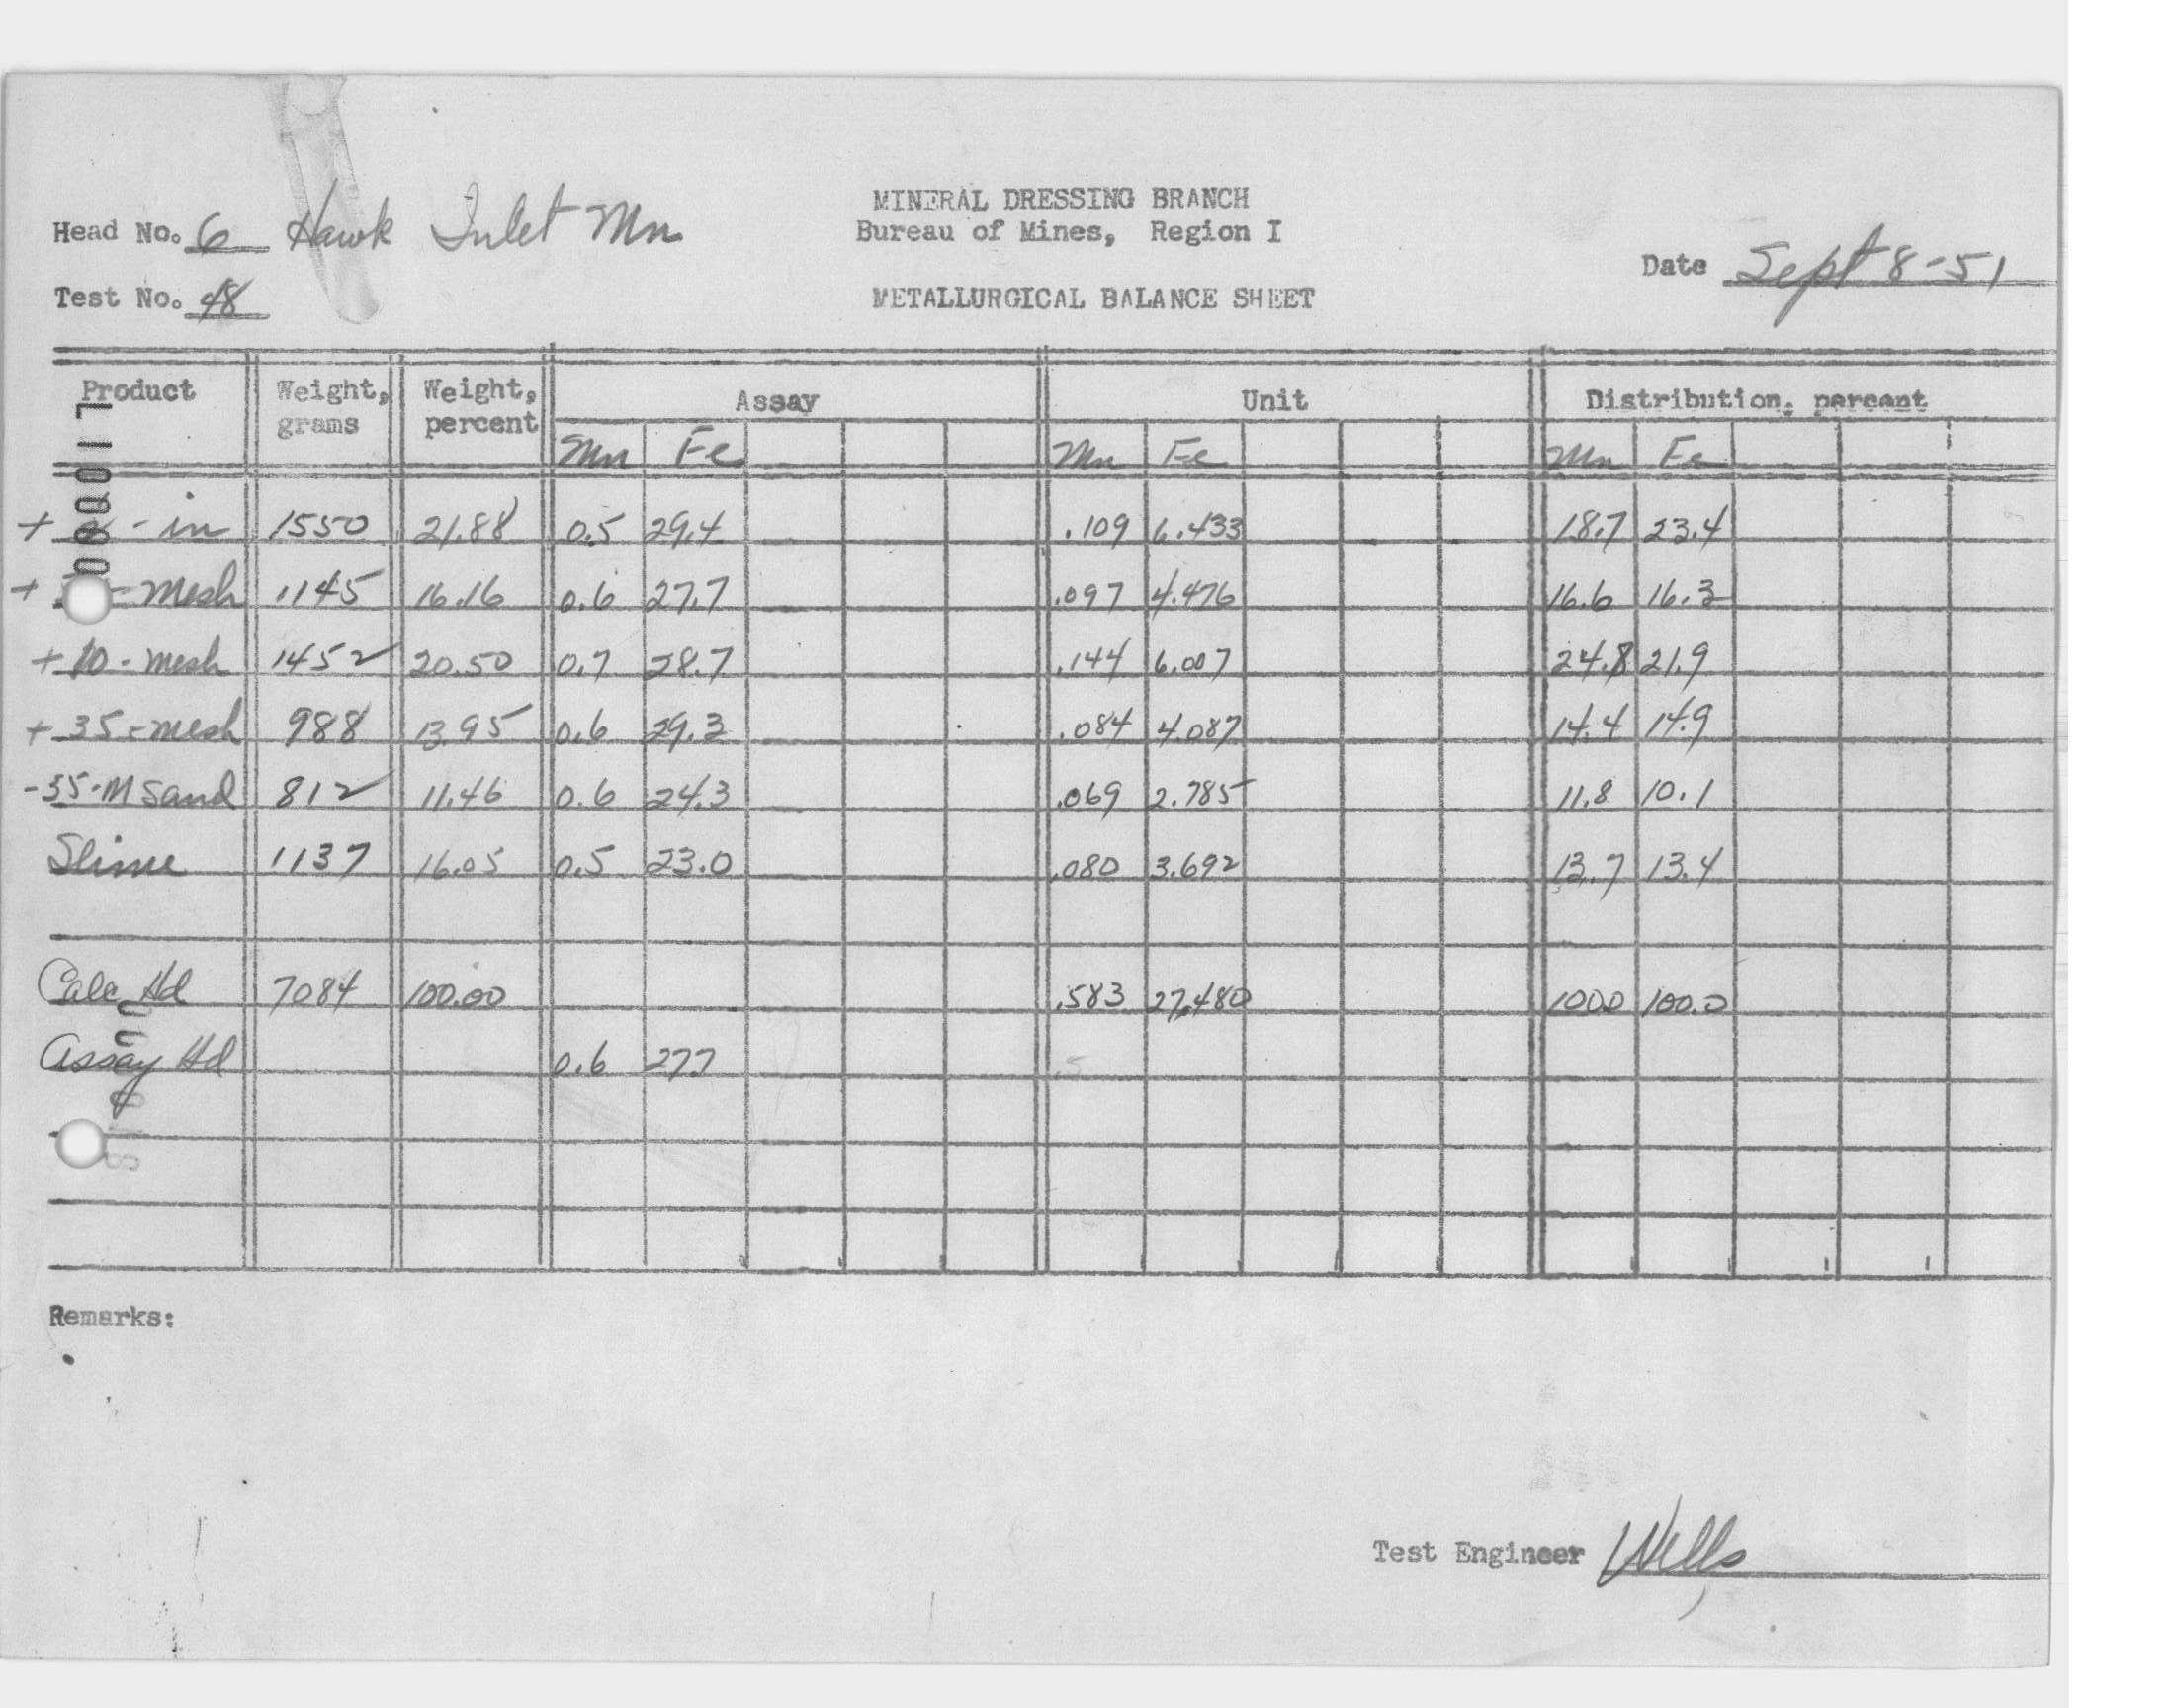 MINERAL DRESSING BRANCH
Head No. 6 Hawk Inlet Mn Bureau of Mines, Region I
Date Sept 8-51
Test No. 48 METALLURGICAL BALANCE SHEET
Product Weight, grams Weight, percent Assay Unit Distribution, percent
Mn Fe Mn Fe Mn Fe
+ - in 1550 21.88 0.5 29.4 .109 6.433 18.7 23.4
+ - mesh 1145 16.16 0.6 27.7 .097 4.476 16.6 16.3
+ 10 - mesh 1452 20.50 0.7 28.7 .144 6.007 24.8 21.9
+ 35 - mesh 988 13.95 0.6 29.3 .084 4.087 14.4 14.9
-35-M Sand 812 11.46 0.6 24.3 .069 2.785 11.8 10.1
Slime 1137 16.05 0.5 23.0 .080 3.692 13.7 13.4
Calc Hd 7084 100.00 .583 27.480 100.0 100.0
Assay Hd 0.6 27.7 .5
Remarks:
Test Engineer Wells